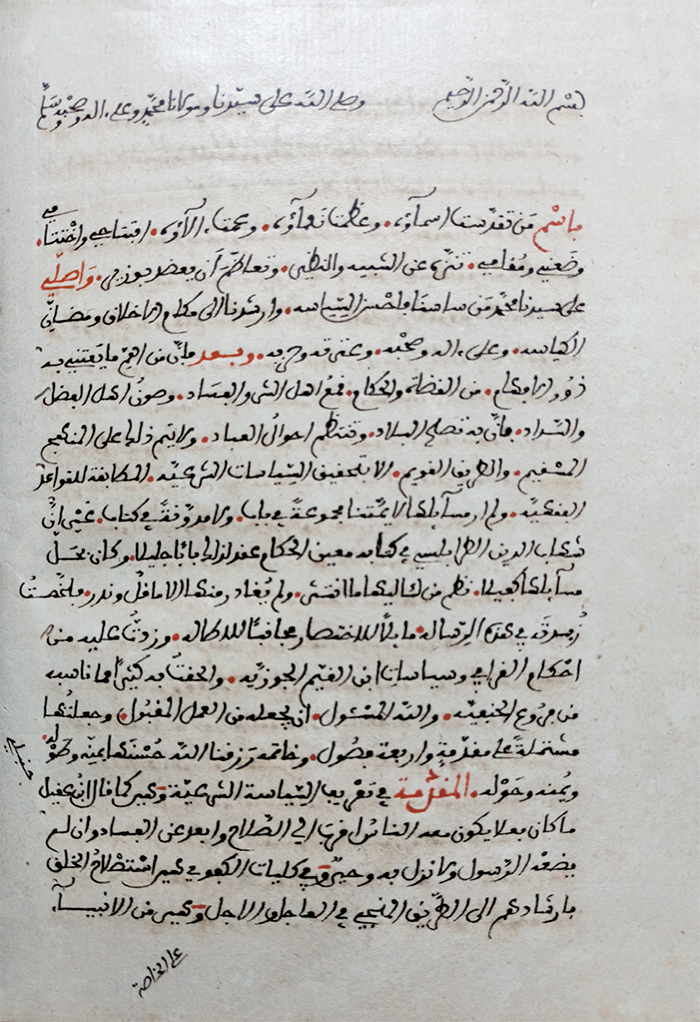 بسم الله الرحمن الرحيم وصلى الله على سيدنا ومولانا محمد وعلى ءاله وصحبه وسلم
باسم من تقدست اسماؤه، وعظمت نعماؤه، وعمت ءالاؤه، افتتاحي واختتامي في
وضعي ومقامي، تنزه عن الشبيه والنظير، وتعاظم ان يعضد بوزير، واصلي
على سيدنا محمد من ساسنا باحسن السياسه، وارشدنا الى مكارم الاخلاق ومضان
الكياسه، وعلى ءاله وصحبه، وعترته وحزبه، وبعد فان من اهم ما يعتني به
ذوو الافهام، من القضاة والحكام، قمع اهل الشر والفساد، وصون اهل الفضل
والسداد، فان به تصلح البلاد، وتنتظم احوال العباد، ولا يتم ذلك على المنهج
المستقيم، والطريق القويم، الا بتحقيق السياسات الشرعيه، المطابقة للقواعد
الفقهيه، ولم ار مسآيلها لايمتنا مجموعة في باب، ولا مدونة في كتاب، غير ان
شهاب الدين الطرابلسي في كتابه معين الحكام عقد لذلك بابا جليلا، وكان بحل
مسآيلها كفيلا، نظم من لئاليها ما انتثر، ولم يغادر منها الا ما قل وندر، فلخصت
زبدته في هذه الرساله، مايلا للاختصار مجانبا للاطاله، وزدت عليه من
احكام القرافي وسياسات ابن القيم الجوزيه، والحقت به كثيرا مما ناسبه
من فروع الحنفيه، والله المسئول، ان يجعله من العمل المقبول، وجعلتها
مشتملة على مقدمة واربعة فصول، وخاتمه رزقنا الله حسنها بمنه وطوله
ويمنه وحوله، المقدمة في تعريف السياسة الشرعية وهي كما قال ابن عقيل
حنبلي
ما كان فعلا يكون معه الناس اقرب الى الصلاح وابعد عن الفساد وان لم
يضعه الرسول ولا نزل به وحي وفي كليات الكفوي هي استصلاح الخلق
بارشادهم الى الطريق المنجي في العاجل والاجل وهي من الانبيآء
على الخاصة